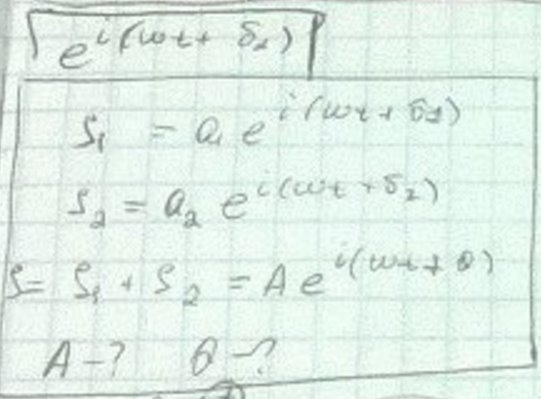 e^{i(ωt + δ_2)}
S_1 = a_1 e^{i(ωt + δ_1)}
S_2 = a_2 e^{i(ωt + δ_2)}
S = S_1 + S_2 = A e^{i(ωt + θ)}
A - ? θ - ?